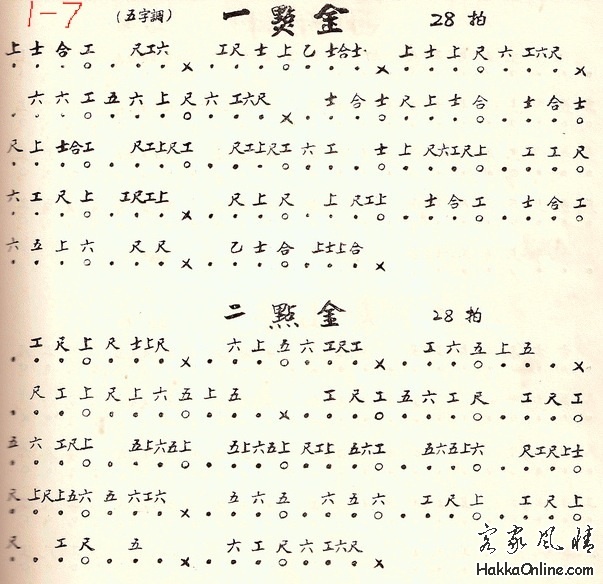 1-7 (五字調) 一點金 28拍
上士合工 尺工六 工尺士上乙士合士 上士上尺六工六尺
六六工五六上尺六工六尺 士合士尺上士合 士合士
尺上士合工 尺工上尺工 尺工上尺工六工 士上尺六工尺上 工工尺
六工尺上 工尺工上 尺上尺 上尺工上 士合工 士合工
六五上六 尺尺 乙士合 上士上合
二點金 28拍
工尺上尺士上尺 六上五六工尺工 工六五上五
尺工上尺上六五上五 工尺工五六工尺 工尺工
五六工尺上 五上六五上 五上六五上尺工上五六工 五六五上六 尺工尺上士
尺上尺上五六五六工六 五六五 六五六 工尺上 工尺上
尺工尺五 六工尺六工六尺
客家風情
HakkaOnline.com